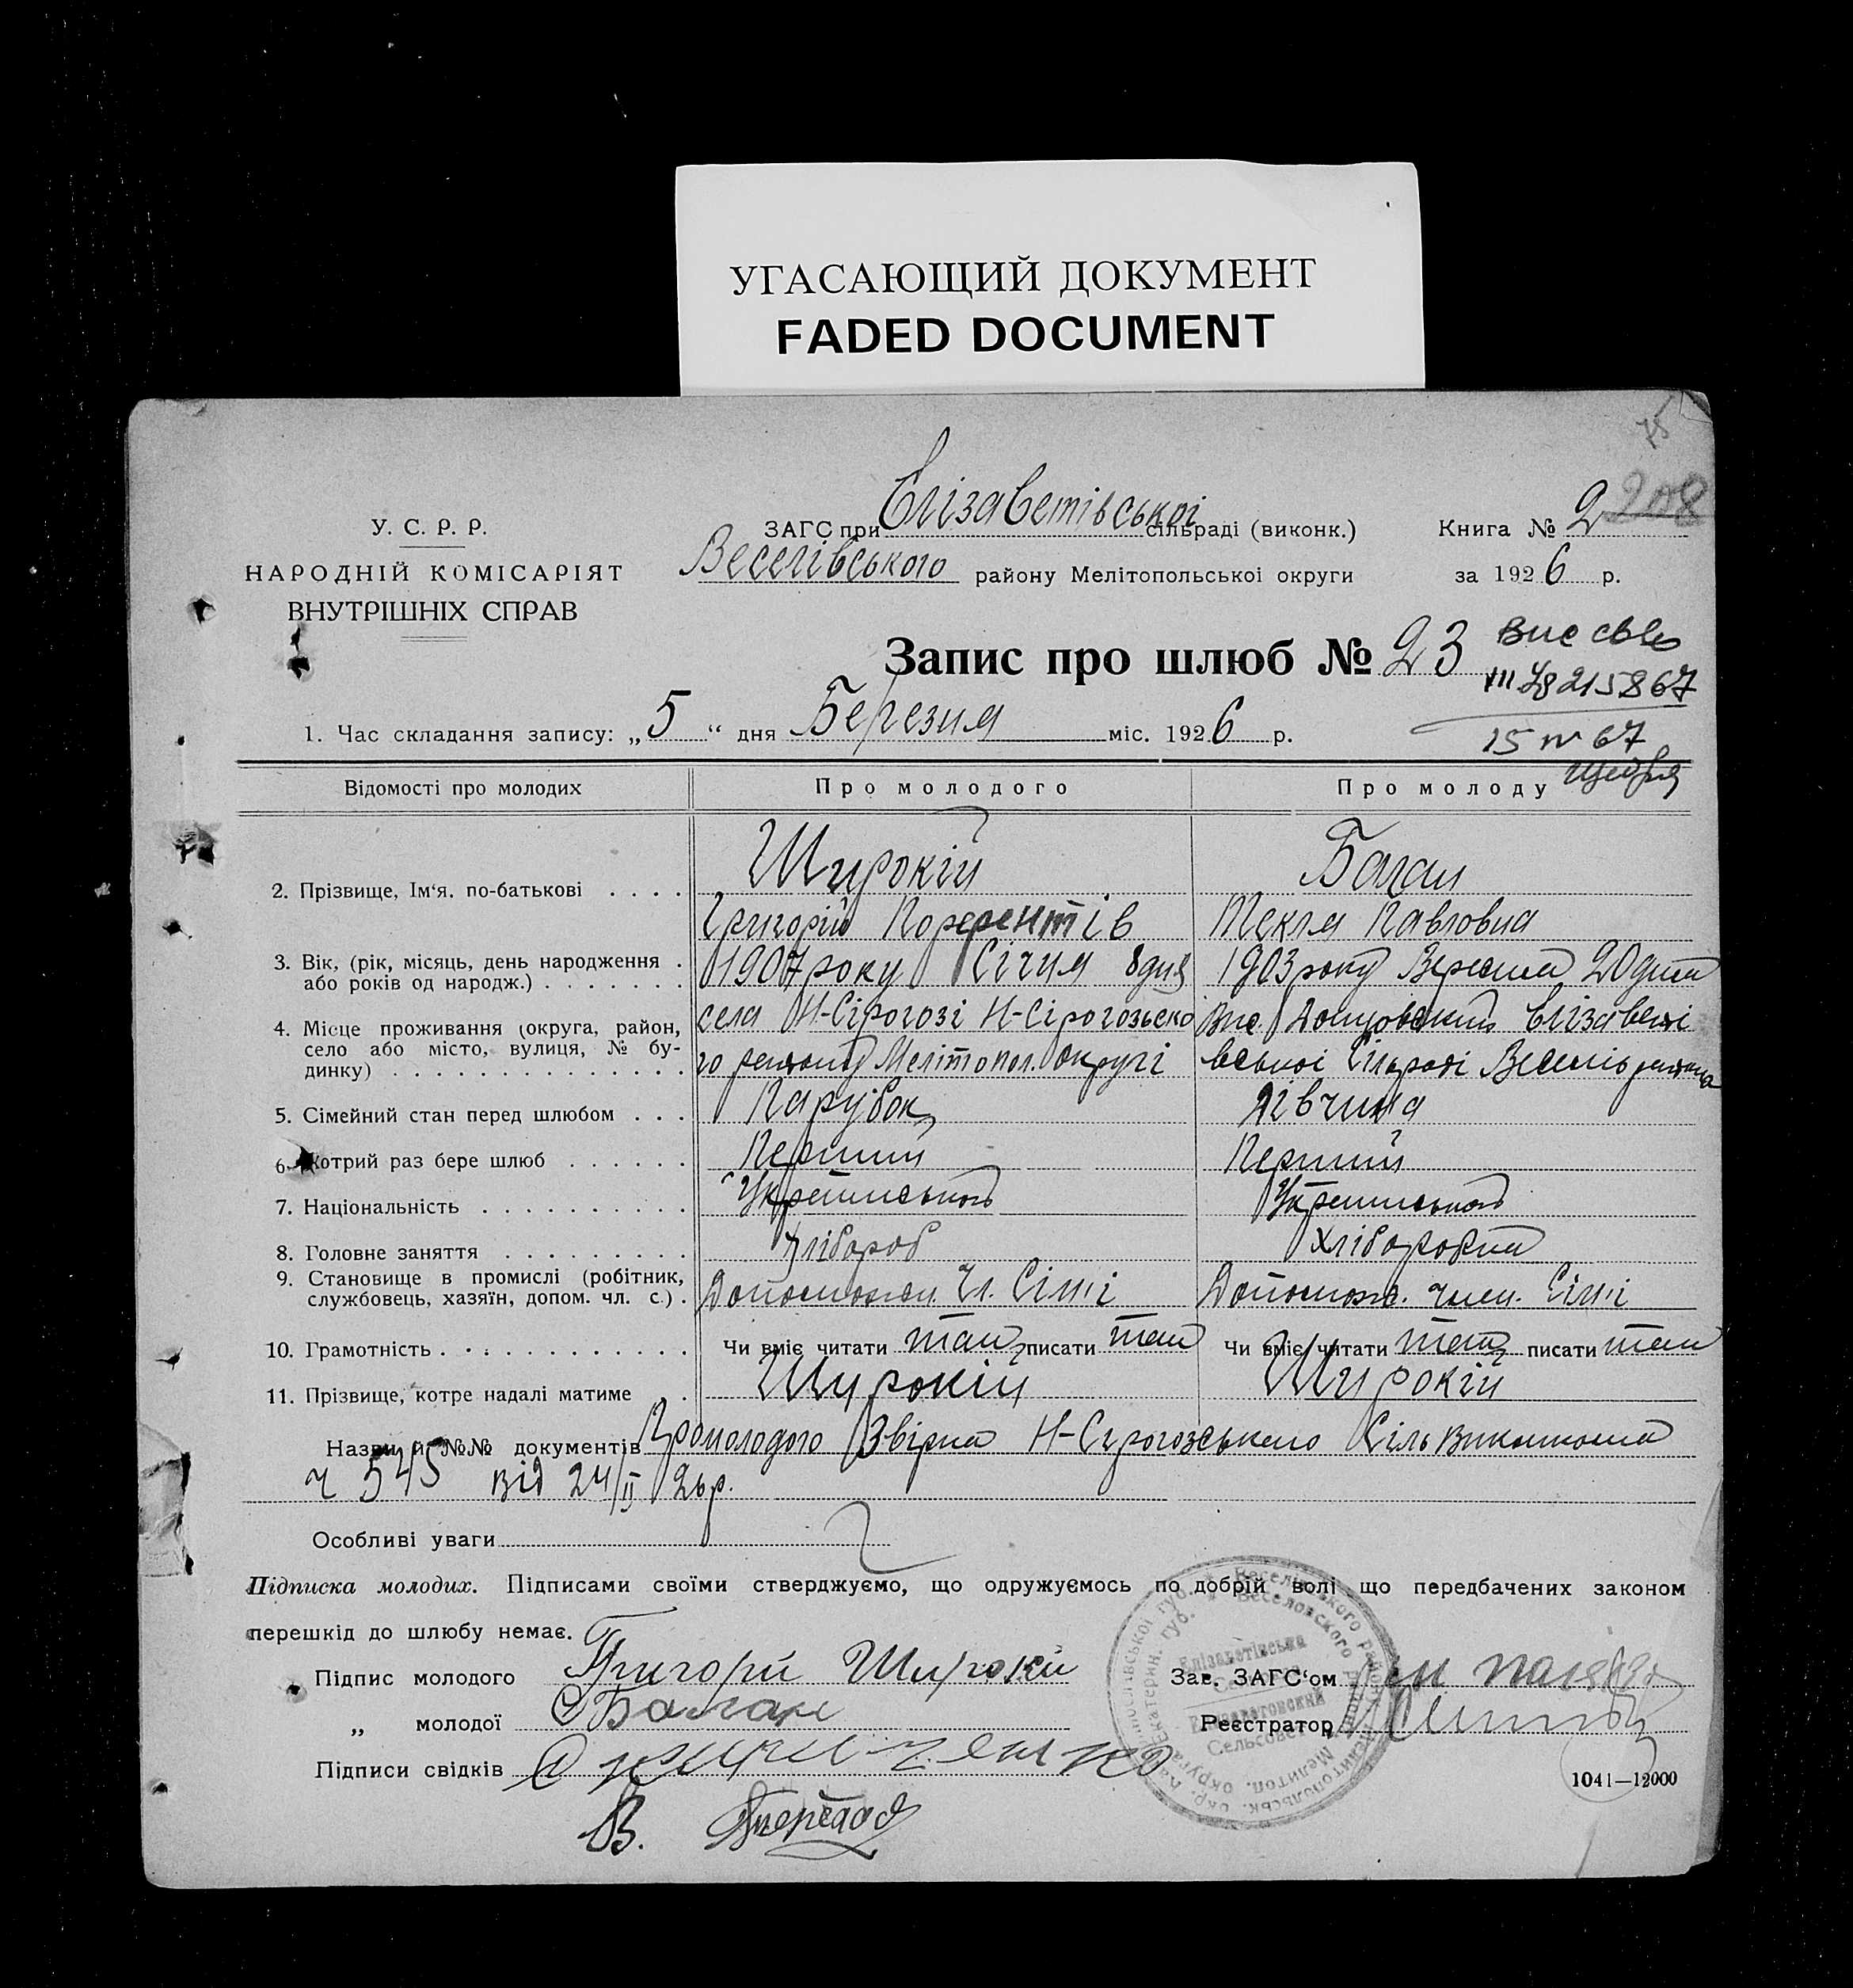 УГАСАЮЩИЙ ДОКУМЕНТ
FADED DOCUMENT
75
208
У. С. Р. Р.
НАРОДНІЙ КОМІСАРІЯТ
ВНУТРІШНІХ СПРАВ
ЗАГС при Єлізаветівської сільраді (виконк.)
Веселівського району Мелітопольської округи
Книга № 2
за 1926 р.
Запис про шлюб № 23
215867
15 67
1. Час складання запису: „5“ дня Березня міс. 1926 р.
Відомості про молодих Про молодого Про молоду
2. Прізвище, Ім‘я. по-батькові . . . . Широкій Баган
Григорій Текля Павловна
3. Вік, (рік, місяць, день народження . або років од народж.) . . . . . . . 1907 року Січня 8 дня 1903 року Вересня 20 дня
4. Місце проживання (округа, район, село або місто, вулиця, № будинку) . . . . . . . . . . . . . .
села Н-Сірогозі Н-Сірогозьско го району Мелітопол. округі
Єлізаветі вської Сільраді Веселів района
5. Сімейний стан перед шлюбом . . . Парубок Дівчина
6. Котрий раз бере шлюб . . . . . . Перший Перший
7. Національність . . . . . . . . . . Украінського Украінського
8. Головне заняття . . . . . . . . . хлібороб хліборобка
9. Становище в промислі (робітник, службовець, хазяїн, допом. чл. с.) . Допоможн. Чл. Сімі Допомож. член. Сімі
10. Грамотність . . . . . . . . . . . . Чи вміє читати так писати так Чи вміє читати так писати так
11. Прізвище, котре надалі матиме . . Широкій Широкій
Назви й №№ документів Про молодого Н-Сірогозського Сільвиконкома
ч 545 від 24/II 26 р.
Особливі уваги
Підписка молодих. Підписами своїми стверджуємо, що одружуємось по добрій волі що передбачених законом
перешкід до шлюбу немає.
Підпис молодого Григори Широкий
„ молодої Баган
Підписи свідків
В.
Зав. ЗАГС‘ом
Реєстратор
Єлізаветівська
Сельсовет
1041—12000